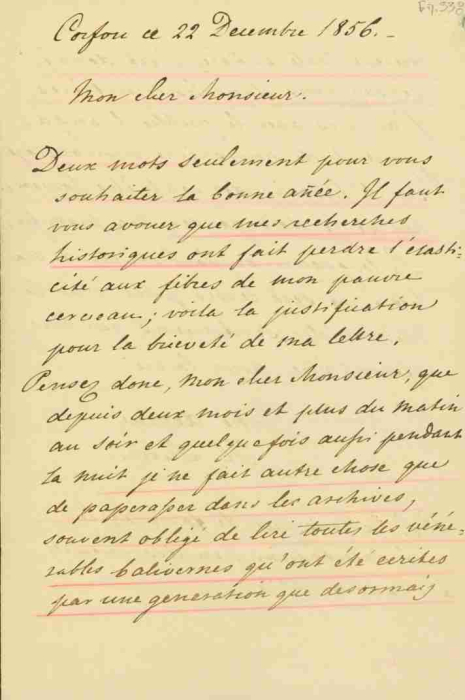 Corfou ce 22 Decembre 1856.-
Mon cher Monsieur.
Deux mots seulement pour vous
souhaiter la bonne añée. Il faut
vous avouer que mes recherches
historiques ont fait perdre l'élasti=
cité aux fibres de mon pauvre
cerveau; voila la justification
pour la brieveté de ma lettre.
Pensez donc, mon cher Monsieur, que
depuis deux mois et plus du matin
au soir et quelquefois aussi pendant
la nuit je ne fait autre chose que
de paperasser dans les archives,
souvent obligé de lire toutes les véné=
rables balivernes qu'ont été ecrites
par une generation que desormais